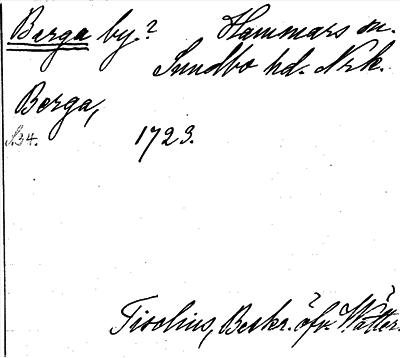 Berga by? Hammars sn.
Sundbo hd. Nrk.
Berga,
S.34. 1723.
Tiselius, Beskr. öfv. Wätter.